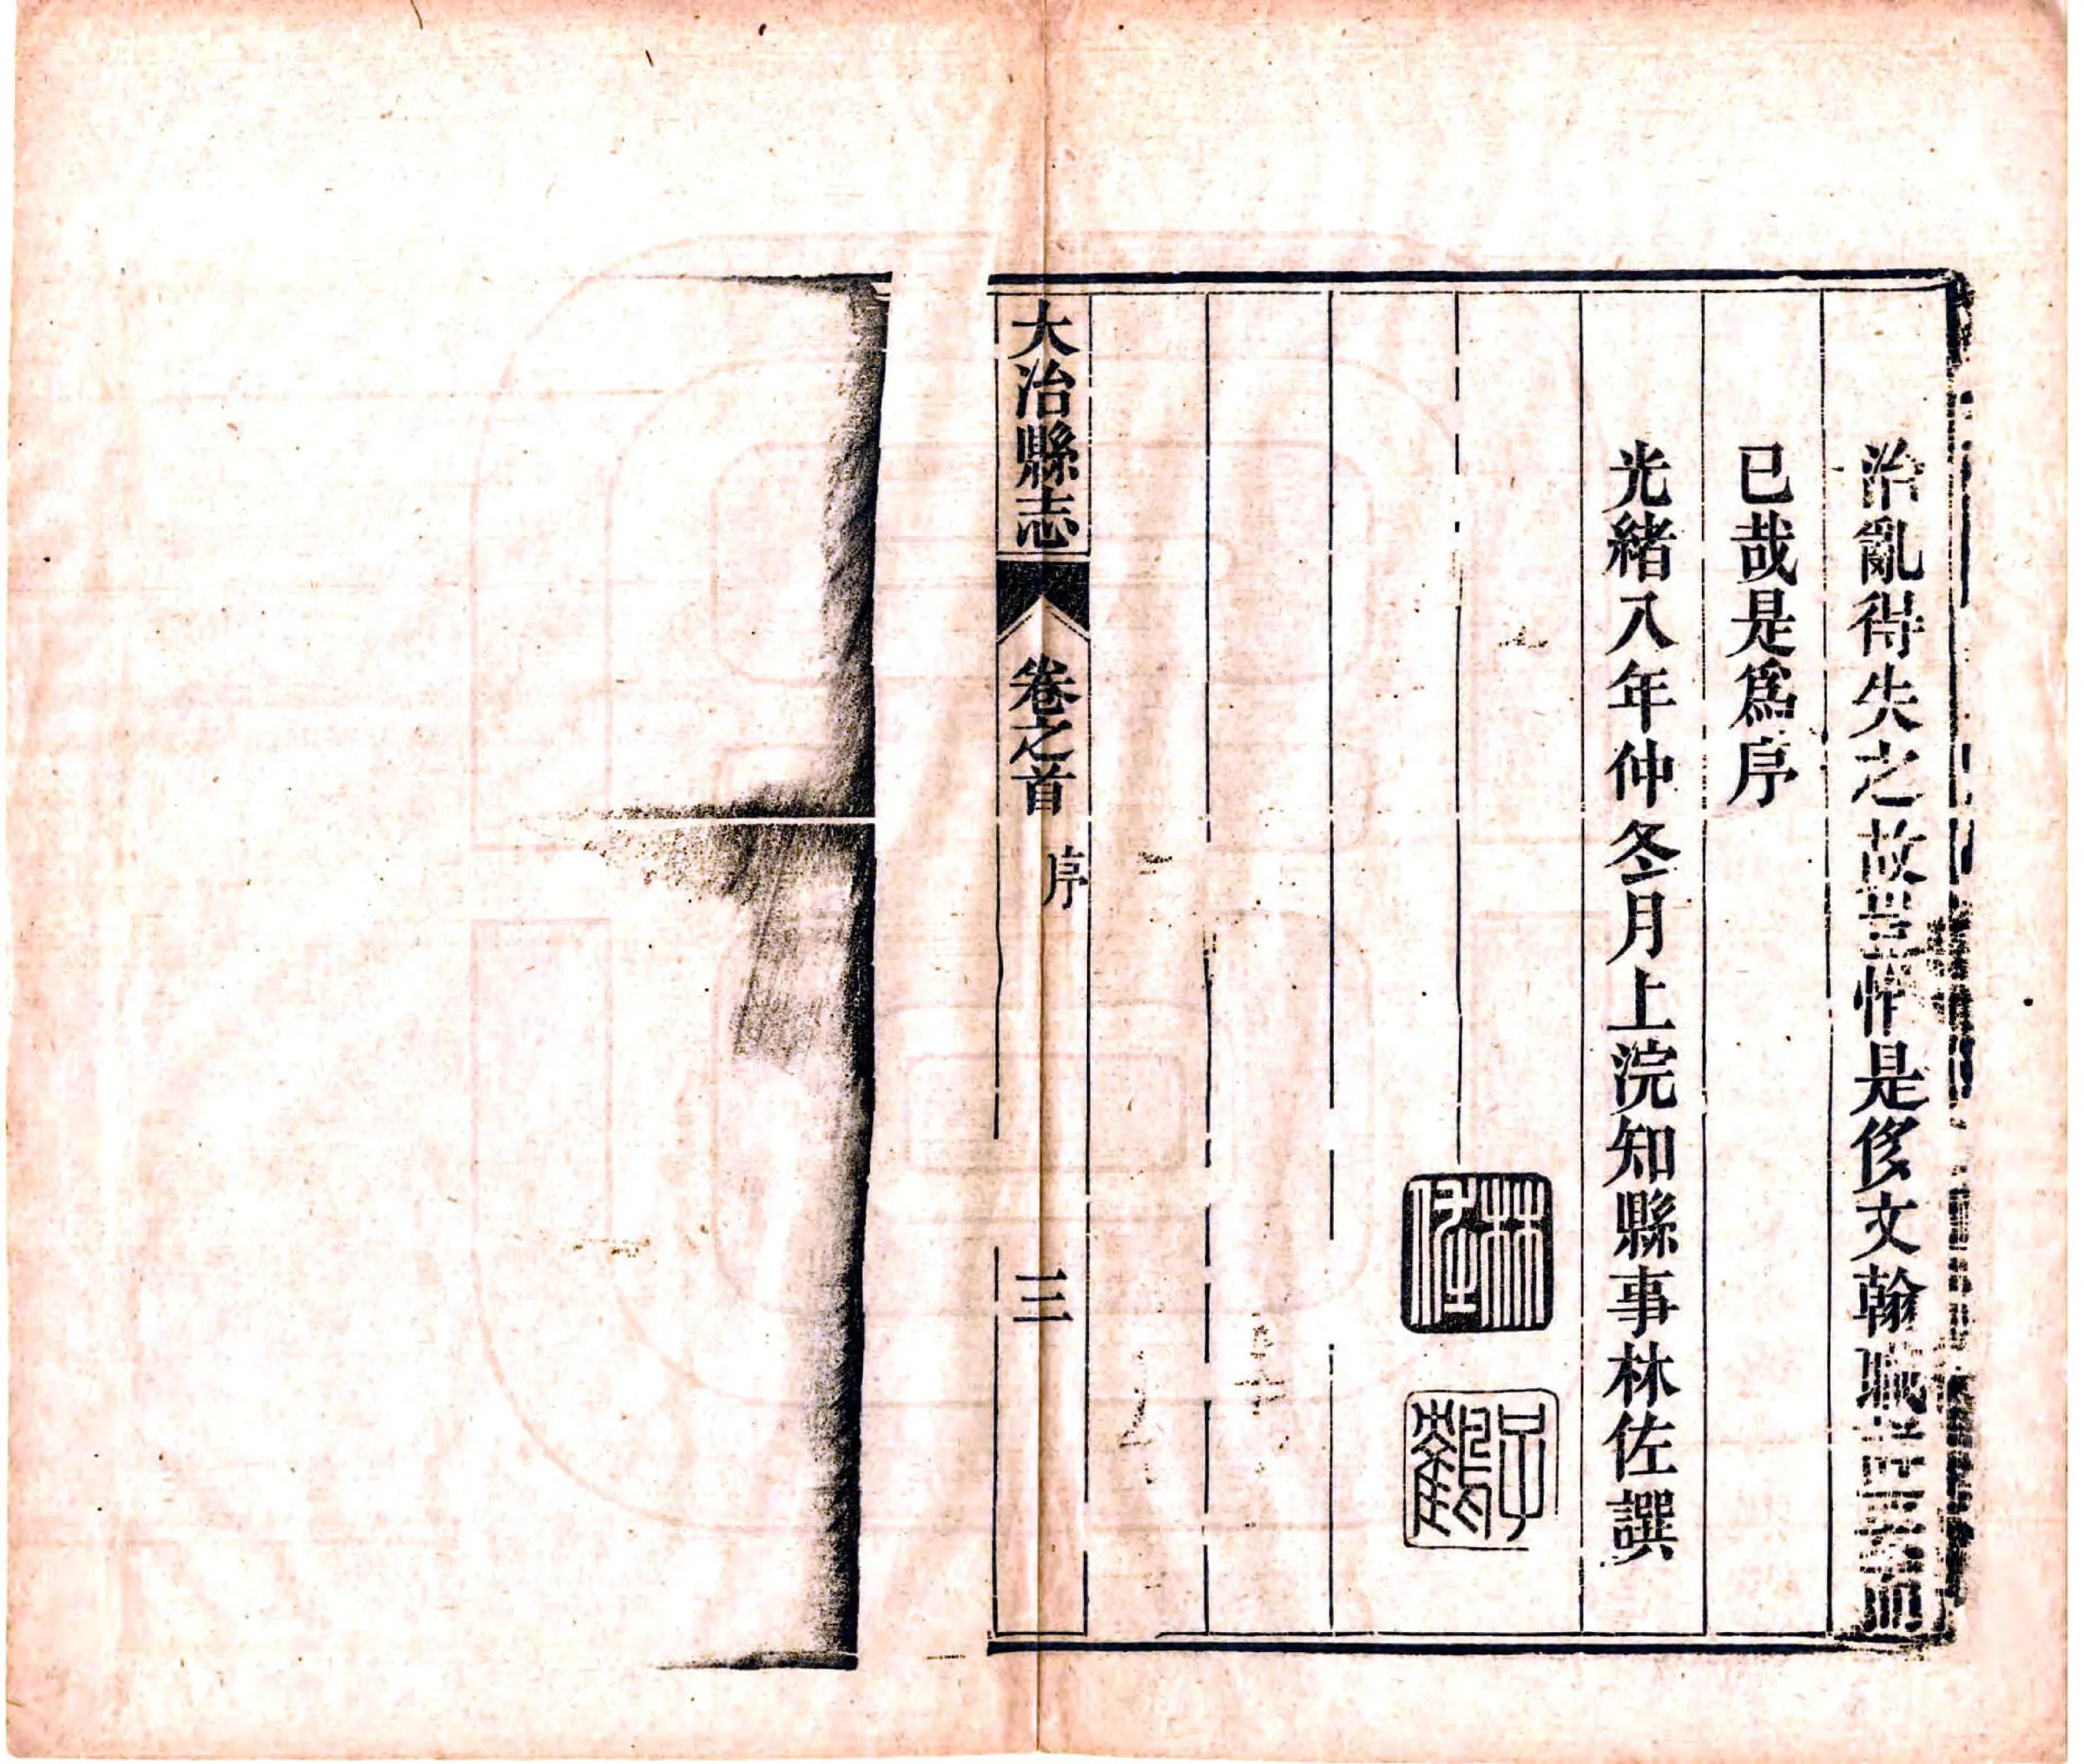 治亂得失之故豈惟是侈文翰職而
已哉是爲序
光緒八年仲冬月上浣知縣事林佐譔
林佐
大冶縣志
卷之首
序
三